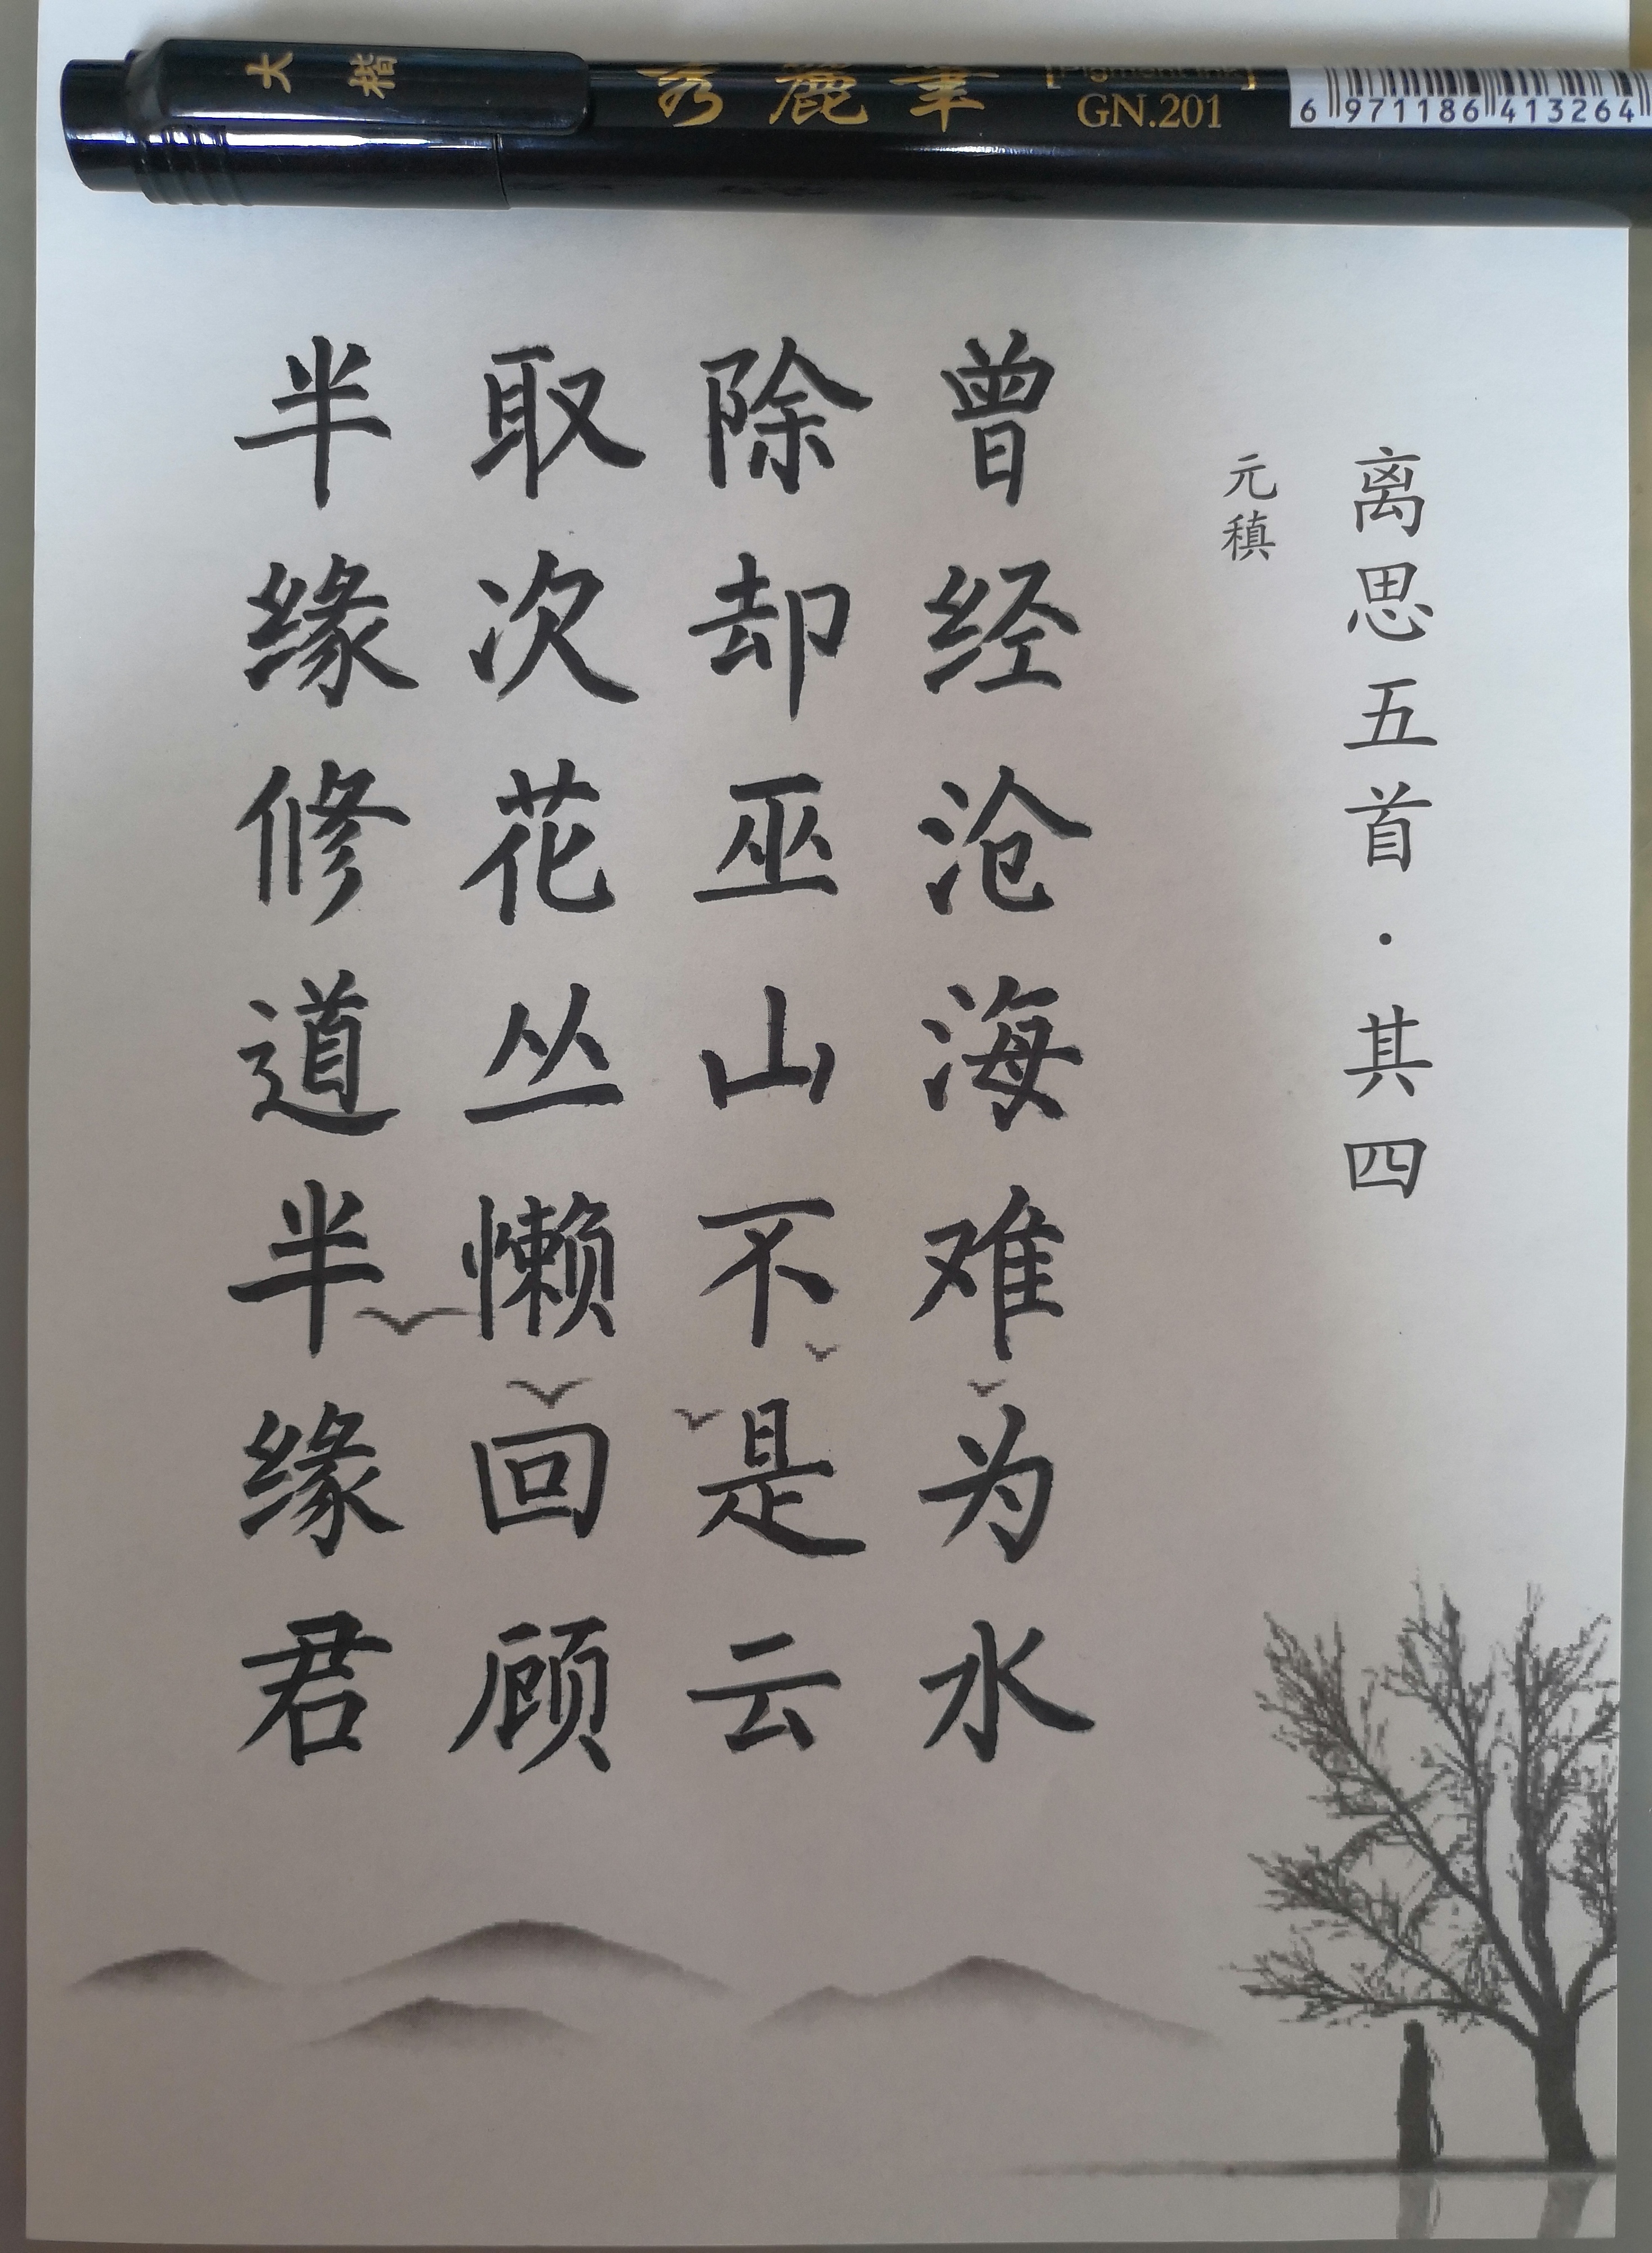 大楷 秀麗筆 [Pigment Ink] GN.201
6 971186 413264
离思五首·其四
元稹
曾经沧海难为水
除却巫山不是云
取次花丛懒回顾
半缘修道半缘君